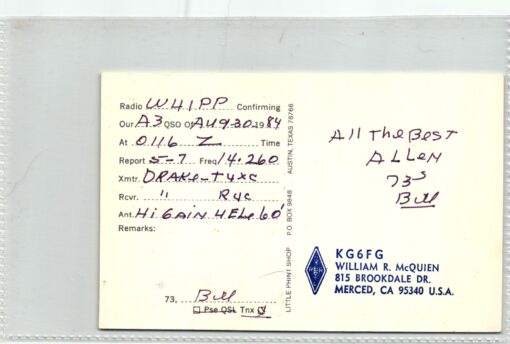 Radio W41PP Confirming
Our A3 QSO Of Aug 30 1984
At 0116 Z Time
Report 5-7 Freq 14.260
Xmtr. DRAKE-T4XC
Rcvr. " R4C
Ant. Hi GAiN 4ELe 60'
Remarks:
73, Bill
Pse QSL Tnx
LITTLE PRINT SHOP P.O. BOX 9848 AUSTIN, TEXAS 78766
All The BesT
ALLeN
73s
Bill
KG6FG
WILLIAM R. McQUIEN
815 BROOKDALE DR.
MERCED, CA 95340 U.S.A.